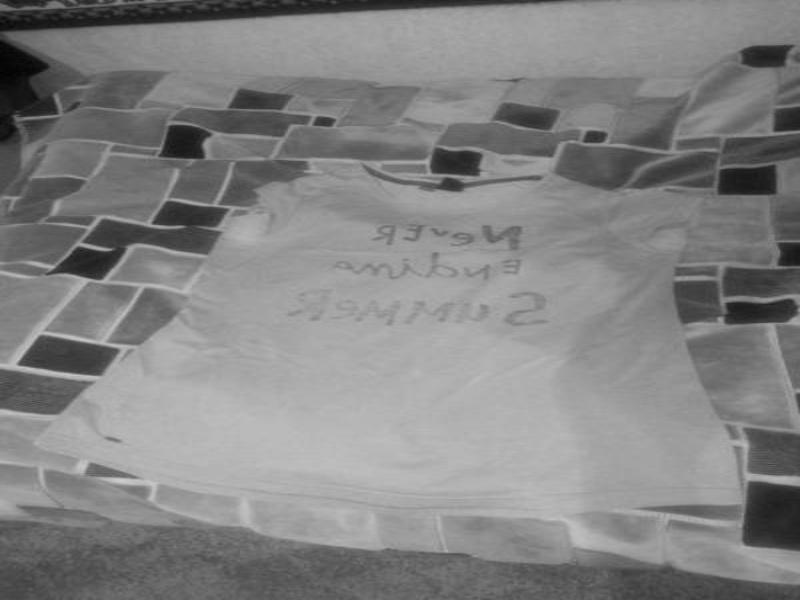 Never
Ending
Summer